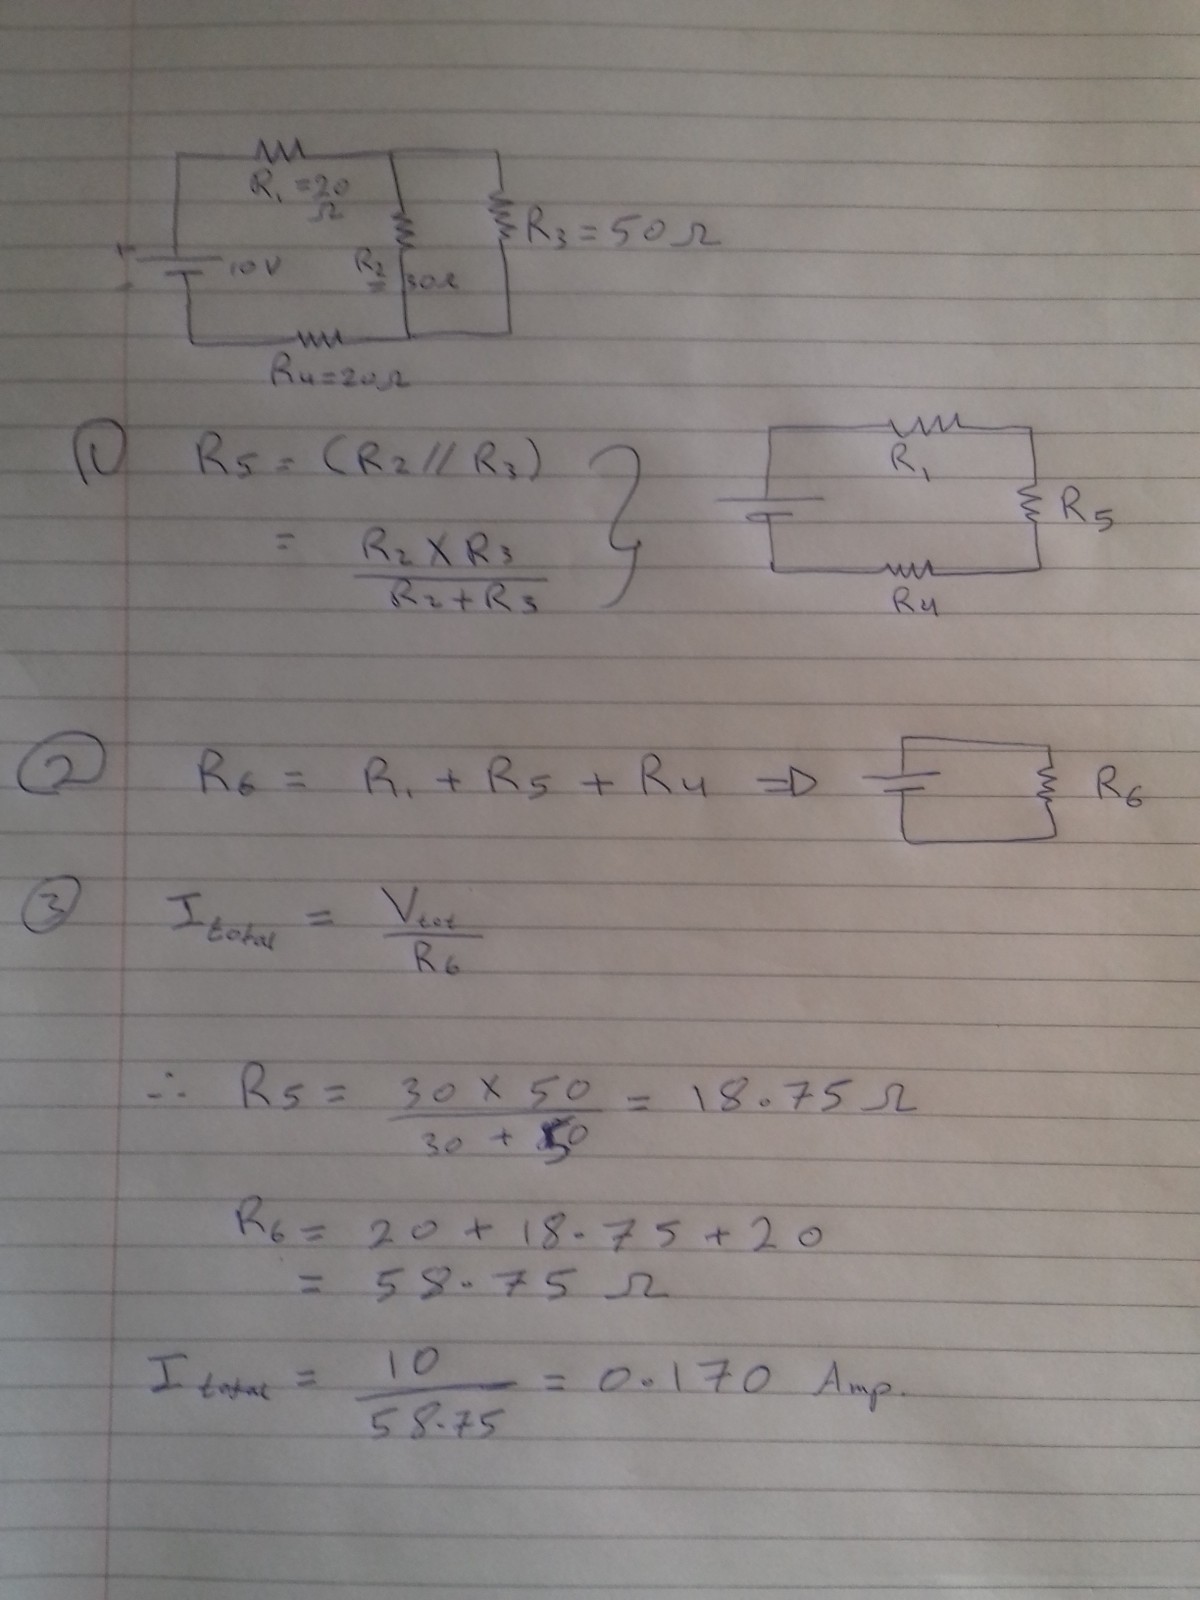 R₁ = 20
Ω
R3 = 50Ω
+
10V
R2
=
30Ω
-
R4=20Ω
① R5 = (R2 // R3)
R₁
R5
= R2 X R3
R2 + R3
R4
② R6 = R₁ + R5 + R4 ⇒
R6
③ I total = Vtot
R6
∴ R5 = 30 X 50 = 18.75 Ω
30 + 50
R6 = 20 + 18.75 + 20
= 58.75 Ω
I total = 10 = 0.170 Amp.
58.75